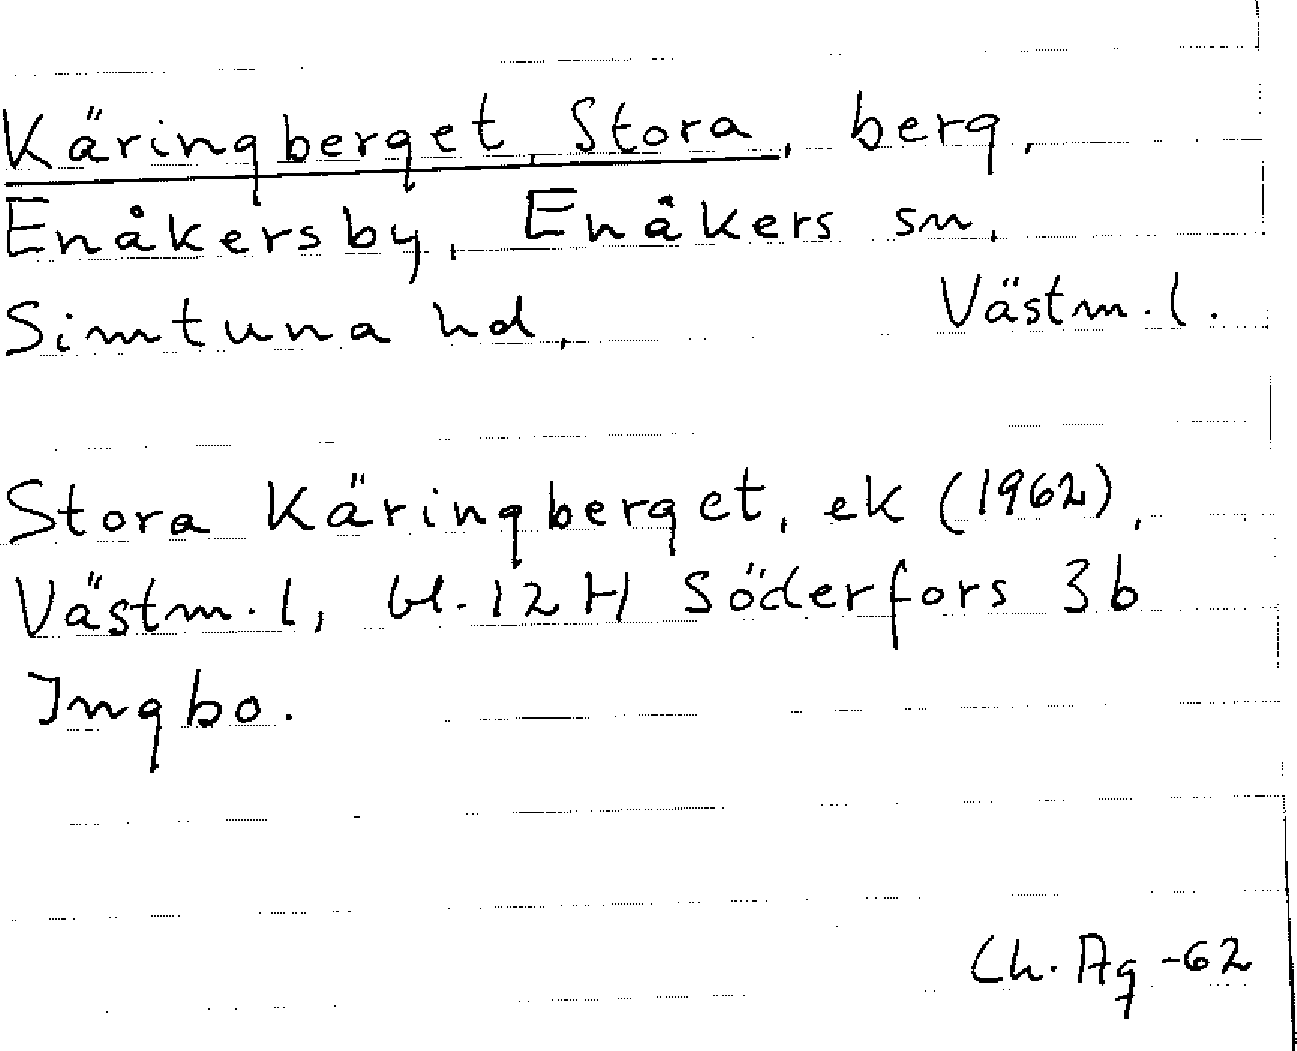 Käringberget, Stora, berg,
Enåkersby, Enåkers sn,
Simtuna hd, Västm. l.
Stora Käringberget, ek (1962),
Västm. l, bl. 12 H Söderfors 3 b
Ingbo.
Ch. Ag -62